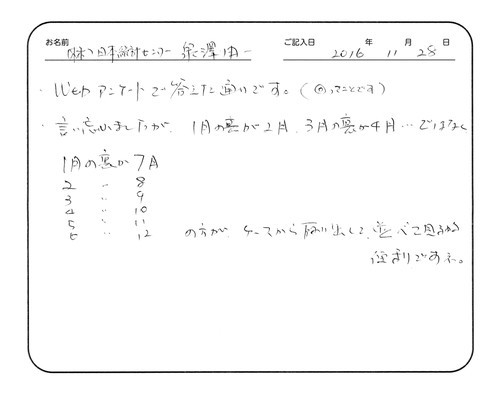 お名前 (株)日本統計センター 泉澤圭一 ご記入日 2016 年 11 月 28 日
・ Webアンケートで答えた通りです。(◎ってことです)
・ 言い忘れましたが、1月の裏が2月、3月の裏が4月…ではなく
1月の裏が7月
2 〃 8
3 〃 9
4 〃 10
5 〃 11
6 〃 12
の方が、ケースから取り出して、並べて見るのが
便利ですネ。